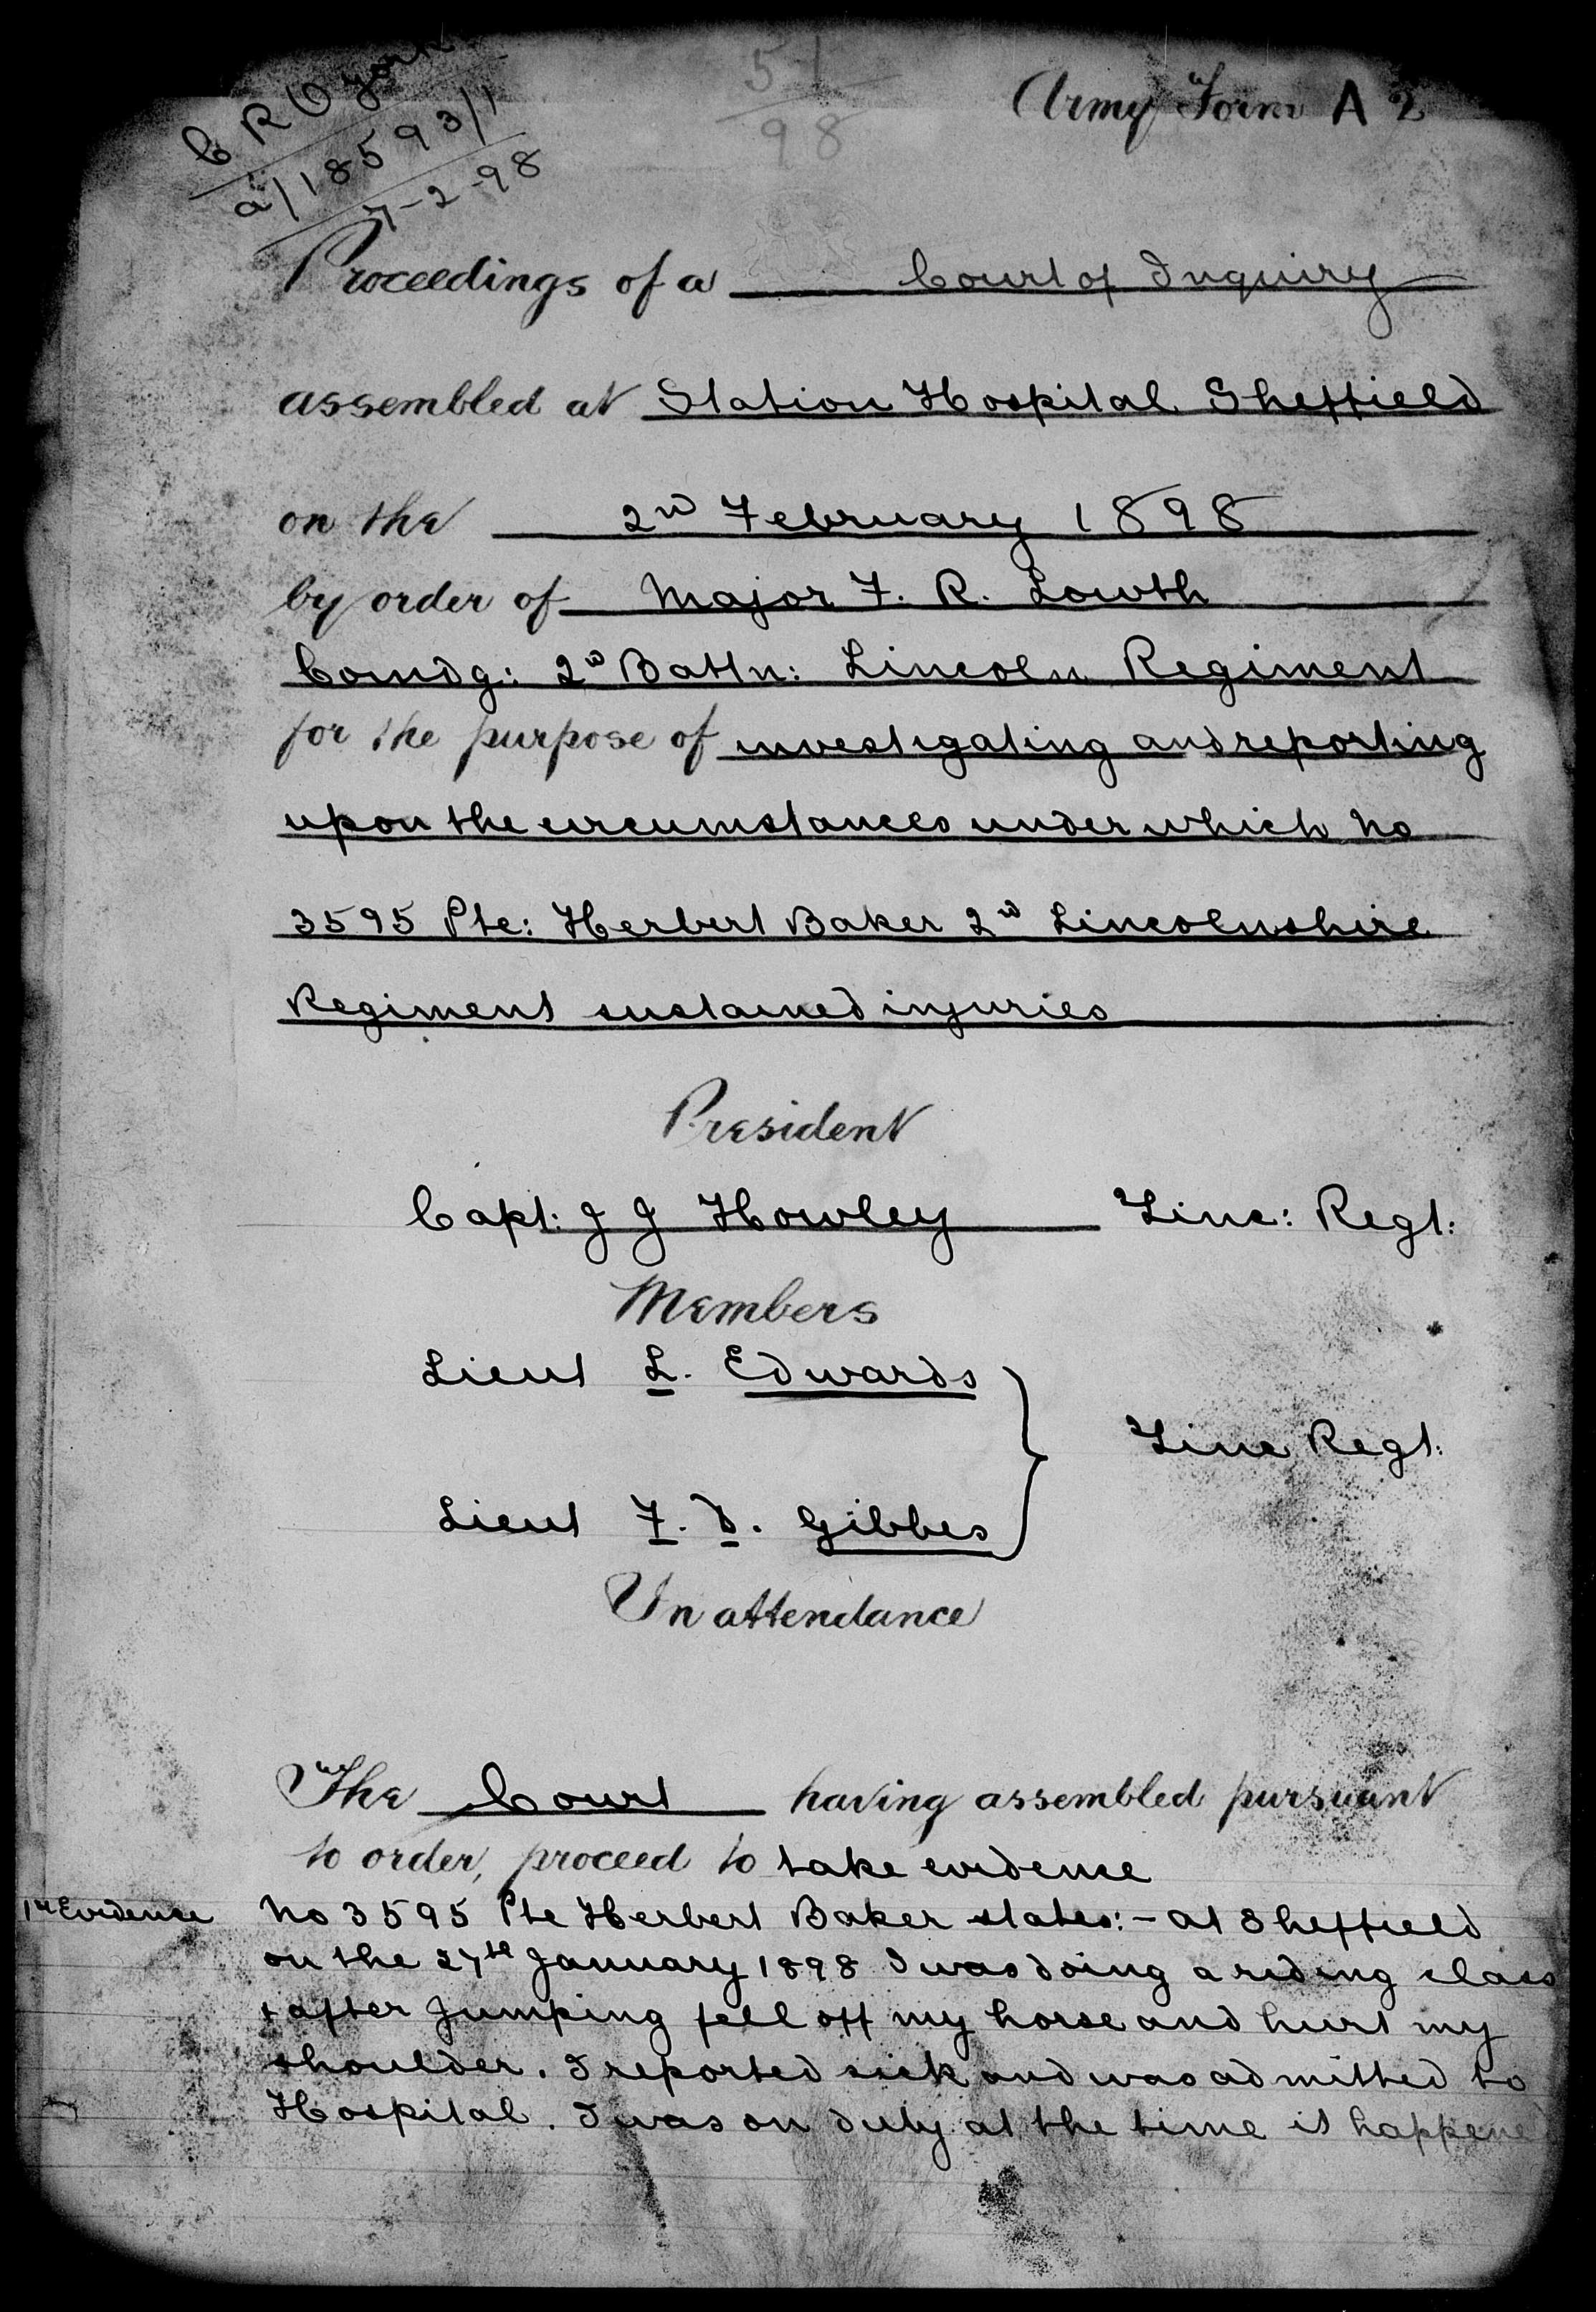 C R O York
a/18593/1
7-2-98
51
98
Army Form A 2
Proceedings of a Court of Inquiry
assembled at Station Hospital Sheffield
on the 2nd February 1898
by order of Major F. R. Lowth
Comdg: 2d Battn: Lincoln Regiment
for the purpose of investigating and reporting
upon the circumstances under which No
3595 Pte: Herbert Baker 2nd Lincolnshire
Regiment sustained injuries
President
Capt: J J Howley Linc: Regt:
Members
Lieut L. Edwards
Linc Regt:
Lieut F. D. Gibbes
In attendance
The Court having assembled pursuant
to order, proceed to take evidence
1st Evidence No 3595 Pte Herbert Baker states:- at Sheffield
on the 27th January 1898 I was doing a riding class
& after Jumping fell off my horse and hurt my
shoulder. I reported sick and was admitted to
Hospital. I was on duty at the time it happened